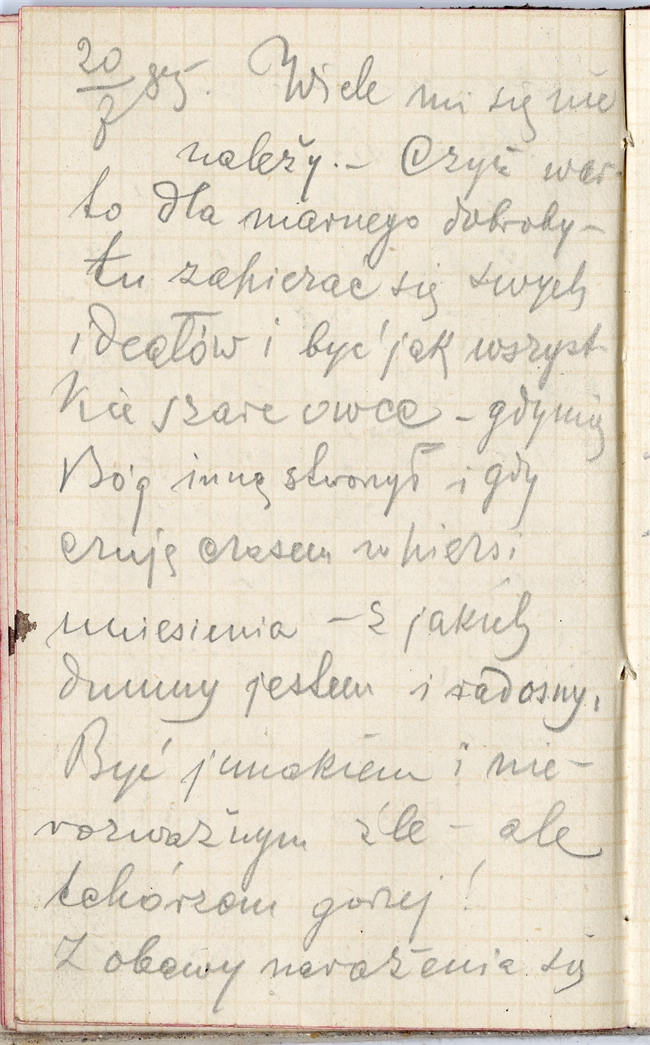 20/7 85. Wiele mi się nie
należy. – Czyż war-
to dla marnego dobroby-
tu zapierać się swych
ideałów i być jak wszyst-
kie szare owce – gdy mię
Bóg inną stworzył i gdy
czuję czasem w piersi
uniesienia – z jakich
dumny jestem i radosny.
Być junakiem i nie-
rozważnym źle – ale
tchórzem gorzej!
Z obawy narażenia się